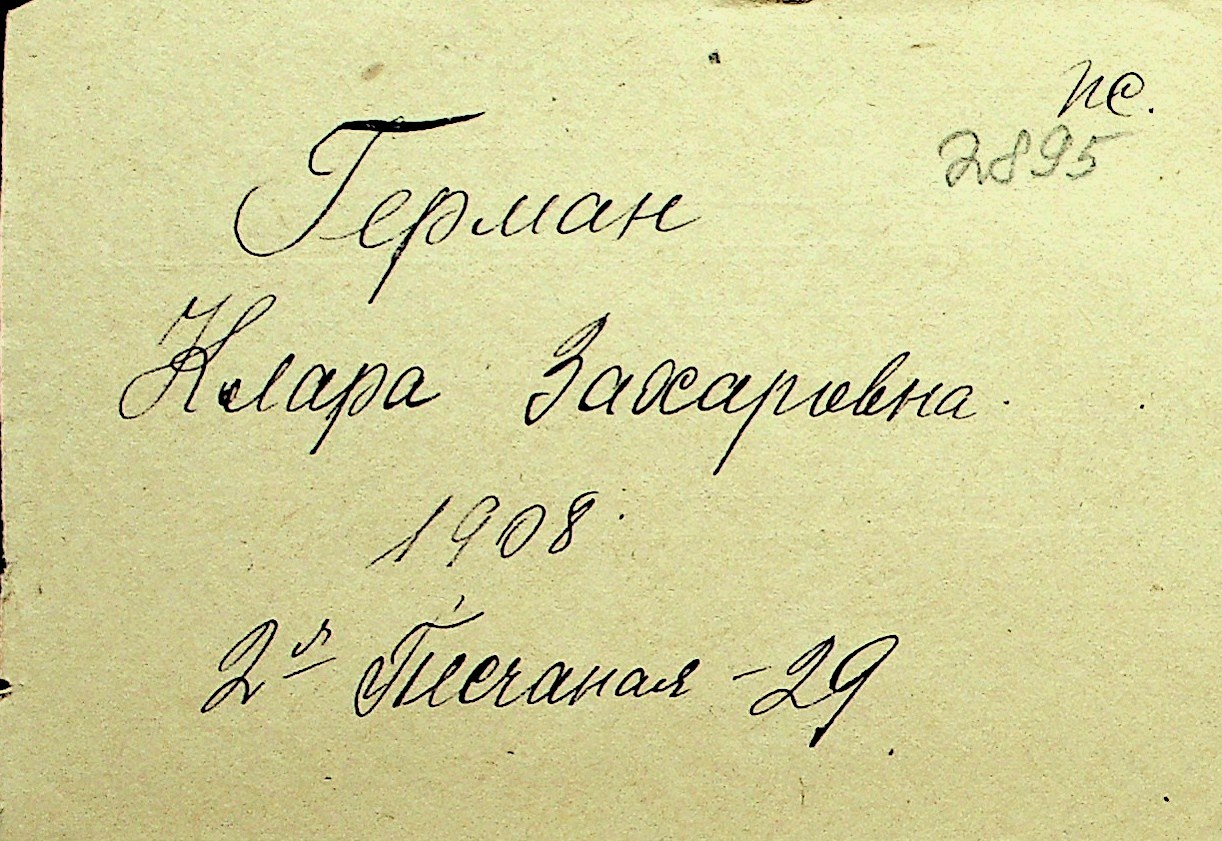 пс.
2895
Герман
Клара Захаровна
1908
2я Песчаная - 29